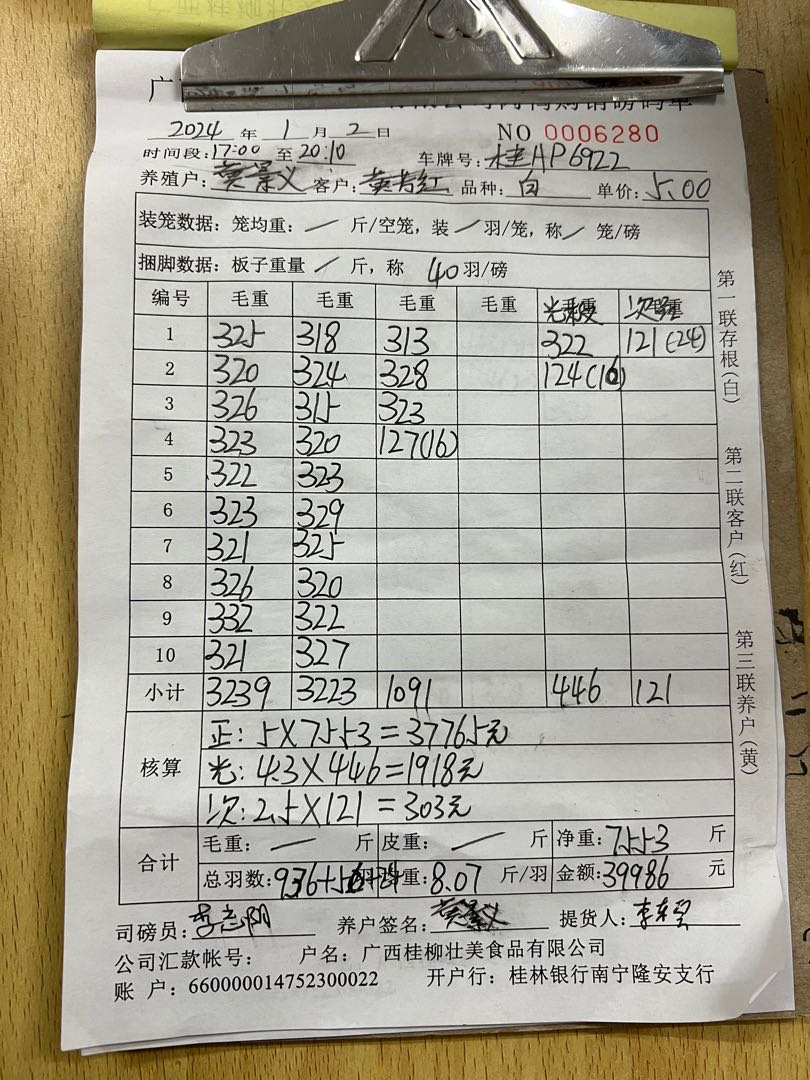 广
2024 年 1 月 2 日 NO 0006280
时间段:17:00 至 20:10 车牌号:桂AP6922
养殖户:黄景义 客户:黄 红 品种:白 单价:5.00
装笼数据:笼均重:/ 斤/空笼,装/羽/笼,称/笼/磅
捆脚数据:板子重量/斤,称 40羽/磅
编号 毛重 毛重 毛重 毛重 光 次
1 325 318 313 322 121(24)
2 320 324 328 124(16)
3 326 315 323
4 323 320 127(16)
5 322 323
6 323 329
7 321 325
8 326 320
9 332 322
10 321 327
小计 3239 3223 1091 446 121
核算
正:5×7553=37765元
光:4.3×446=1918元
次:2.5×121=303元
合计
毛重:— 斤 皮重:— 斤 净重:7553 斤
总羽数:936+56+24 重:8.07 斤/羽 金额:39986 元
司磅员:李志阳 养户签名:黄景义 提货人:李
公司汇款帐号: 户名:广西桂柳壮美食品有限公司
账 户:660000014752300022 开户行:桂林银行南宁隆安支行
第一联存根(白)
第二联客户(红)
第三联养户(黄)